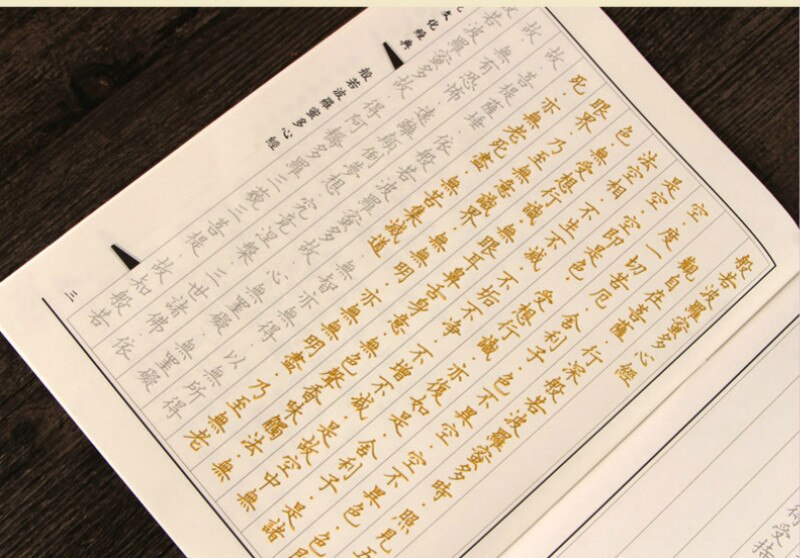 般若波羅蜜多心經
觀自在菩薩·行深般若波羅蜜多時·照見五
空·度一切苦厄·舍利子·色不異空·空不異色·色
是空·空即是色·受想行識·亦復如是·舍利子·是諸
法空相·不生不滅·不垢不淨·不增不減·是故空中無
色·無受想行識·無眼耳鼻舌身意·無色聲香味觸法·無
眼界·乃至無意識界·無無明·亦無無明盡·乃至無老
死·亦無老死盡·無苦集滅道·無智亦無得·以無所得
故·菩提薩埵·依般若波羅蜜多故·心無罣礙·無罣礙
故·無有恐怖·遠離顛倒夢想·究竟涅槃·三世諸佛·依
般若波羅蜜多故·得阿耨多羅三藐三菩提·故知般若
文化經典
般若波羅蜜多心經
三